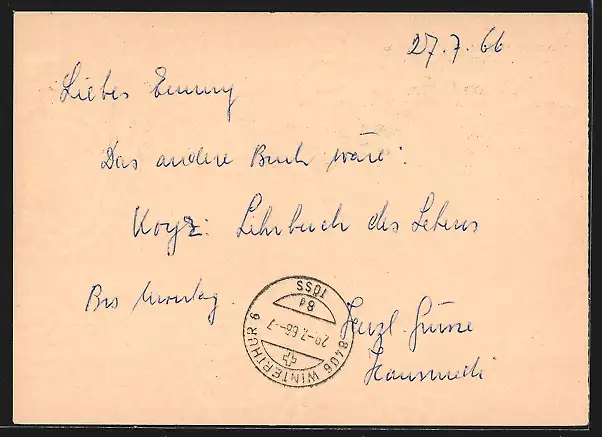 27.7.66
Liebes Emmy
Das andere Buch wäre:
Lehrbuch des Lebens
Bis Montag.
Herzl. Grüsse
Hansruedi
8406 WINTERTHUR 6
TÖSS
8d
29-7.66--7